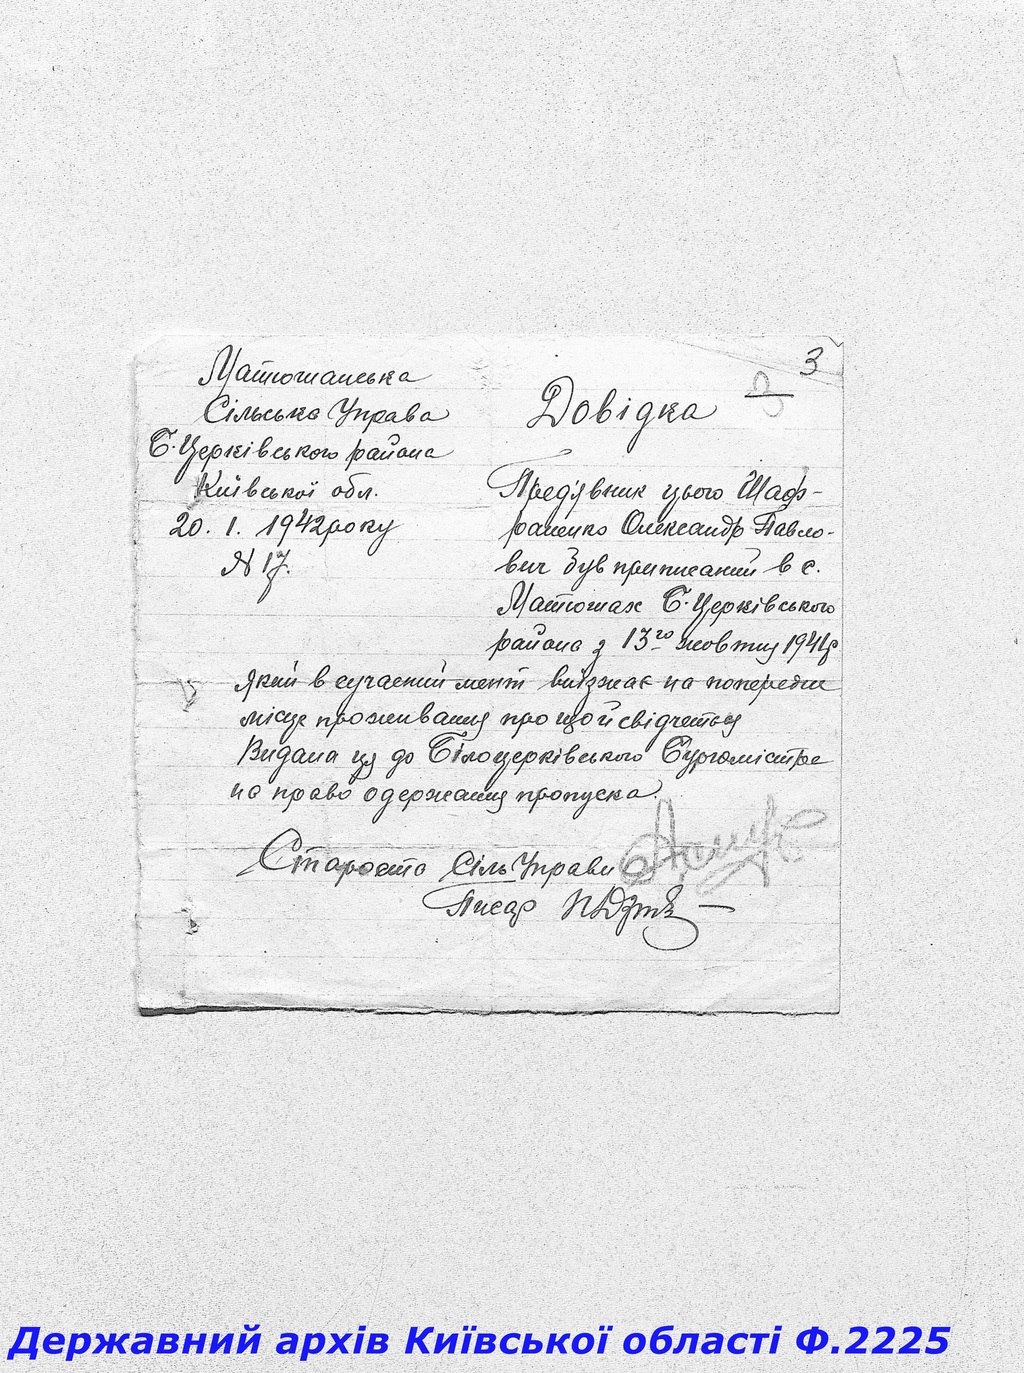 3
Матюшанська
Сільська Управа
Б.Церківського района
Київської обл.
20. 1. 1942 року
N 17.
Довідка
Предявник цього Шаф-
раненко Олександр Павло-
вич був приписаний в с.
Матюшах Б.Церківського
района з 13го жовтня 1941р
який в сучасний мент виїзжає на попередне
місце проживання про що й свідчеться
Видана ця до Білоцерківського Бургомістра
на право одержання пропуска.
Староста Сіль Управи
Писар
Державний архів Київської області Ф.2225